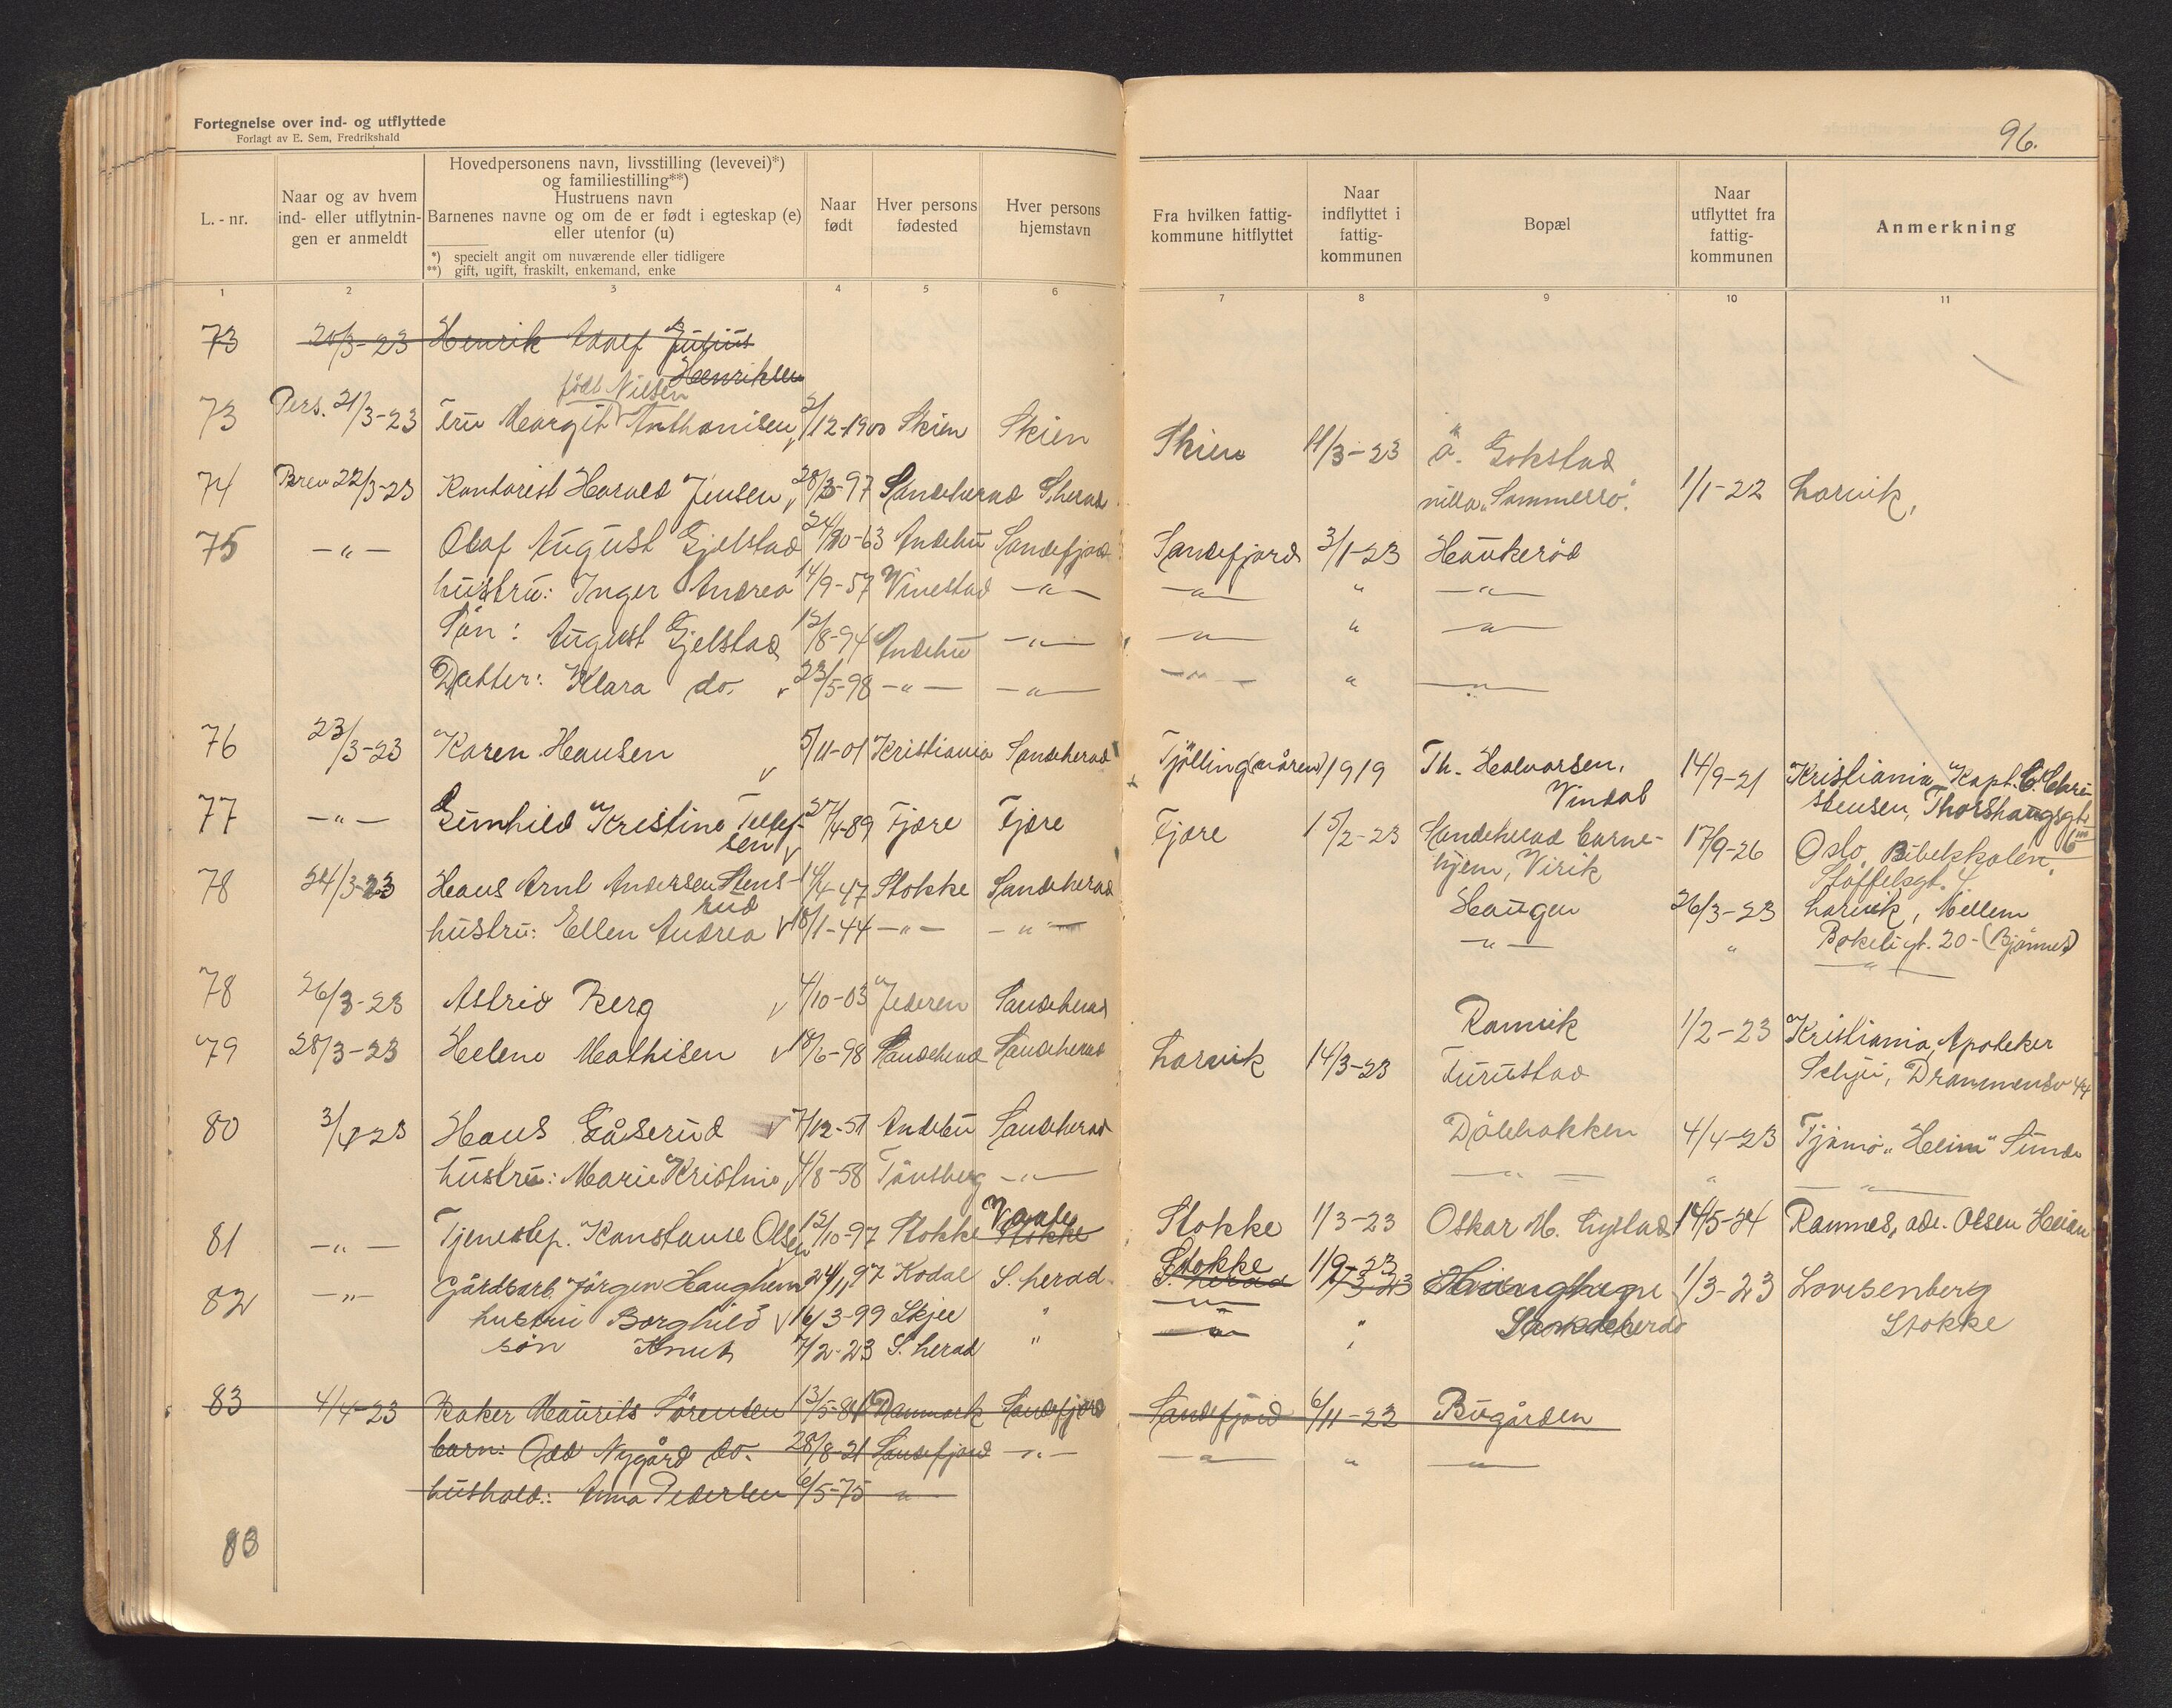 Fortegnelse over ind- og utflyttede
Forlagt av E. Sem, Fredrikshald
96.
L. - nr.
Naar og av hvem
ind- eller utflytnin-
gen er anmeldt
Hovedpersonens navn, livsstilling (levevei)*)
og familiestilling**)
Hustruens navn
Barnenes navne og om de er født i egteskap (e)
eller utenfor (u)
*) specielt angit om nuværende eller tidligere
**) gift, ugift, fraskilt, enkemand, enke
Naar
født
Hver persons
fødested
Hver persons
hjemstavn
Fra hvilken fattig-
kommune hitflyttet
Naar
indflyttet i
fattig-
kommunen
Bopæl
Naar
utflyttet fra
fattig-
kommunen
Anmerkning
1 2 3 4 5 6 7 8 9 10 11
73 20/3-23 Henrik Adolf Julius
Henriksen
født Nilsen
73 Pers. 21/3-23 Fru Margit Anthonisen 2/12-1900 Skien Skien Skien 11/3-23 ö. Gokstad
74 Brev 22/3-23 Kontorist Harald Jensen 28/3-97 Sandeherad S.herad villa „Sommerro“. 1/1-22 Larvik,
75 -„- Olaf August Gjelstad 24/10-63 Andebu Sandefjord Sandefjord 3/1-23 Haukerød
hustru: Inger Andrea 14/9-57 Vivestad -„- -„- „ -„-
Søn: August Gjelstad 12/8-94 Andebu -„- -„- „ -„-
Datter: Klara do. 23/5-98 -„- -„- -„- „ -„-
76 23/3-23 Karen Hansen 5/11-01 Kristiania Sandeherad Tjølling(våren) 1919 Th. Halvorsen, 14/9-21 Kristiania, Kapt. C. Chri-
Vindal stensen, Thorshaugsgt.
77 -„- Gunhild Kristine Tellef- 27/4-89 Fjære Fjære Fjære 15/2-23 Sandeherad barne- 17/9-26 Oslo, Bibelskolen,
sen hjem, Virik Staffelsgt. 4
78 24/3-23 Hans Arnt Andersen Stens- 14/4-47 Stokke Sandeherad Haugen 26/3-23 Larvik, Mellem
rud
hustru: Ellen Andrea 18/1-44 -„- -„- -„- „ Bøkeligt. 20-(Bjønnes)
78 26/3-23 Astrid Berg 4/10-03 Jederen Sandeherad Ranvik 1/2-23 Kristiania, Apoteker
79 28/3-23 Helene Mathisen 18/6-98 Sandeherad Sandeherad Larvik 14/3-23 Furustad Schju, Drammensv 44
80 3/4-23 Hans Gåserud 7/12-51 Andebu Sandeherad Dölebakken 4/4-23 Tjømø „Heim“ Sunde
hustru: Marie Kristine 4/8-58 Tönsberg -„- -„- „ -„-
81 -„- Tjenestep. Konstanse Olsen 12/10-97 Stokke Stokke Stokke 1/3-23 Oskar M. Nystad 14/5-24 Ramnes, adr. Olsen Heian
82 -„- Gårdsarb. Jörgen Haughem 24/11 97 Kodal S. herad S. herad Stokke 1/9-23 Haughem 1/3-23 Lovisenberg
hustru Borghild 16/3-99 Skjee „ -„- „ Sandeherad Stokke
søn Knut 7/2-23 S. herad „ -„- „
83 4/4-23 Baker Maurits Sörensen 13/5-81 Danmark Sandefjord Sandefjord 6/11-22 Bugården
barn: Odd Nygård do. 28/8-21 Sandefjord -„- -„- „ -„-
hushold.: Anna Pedersen 6/5-75 „
83